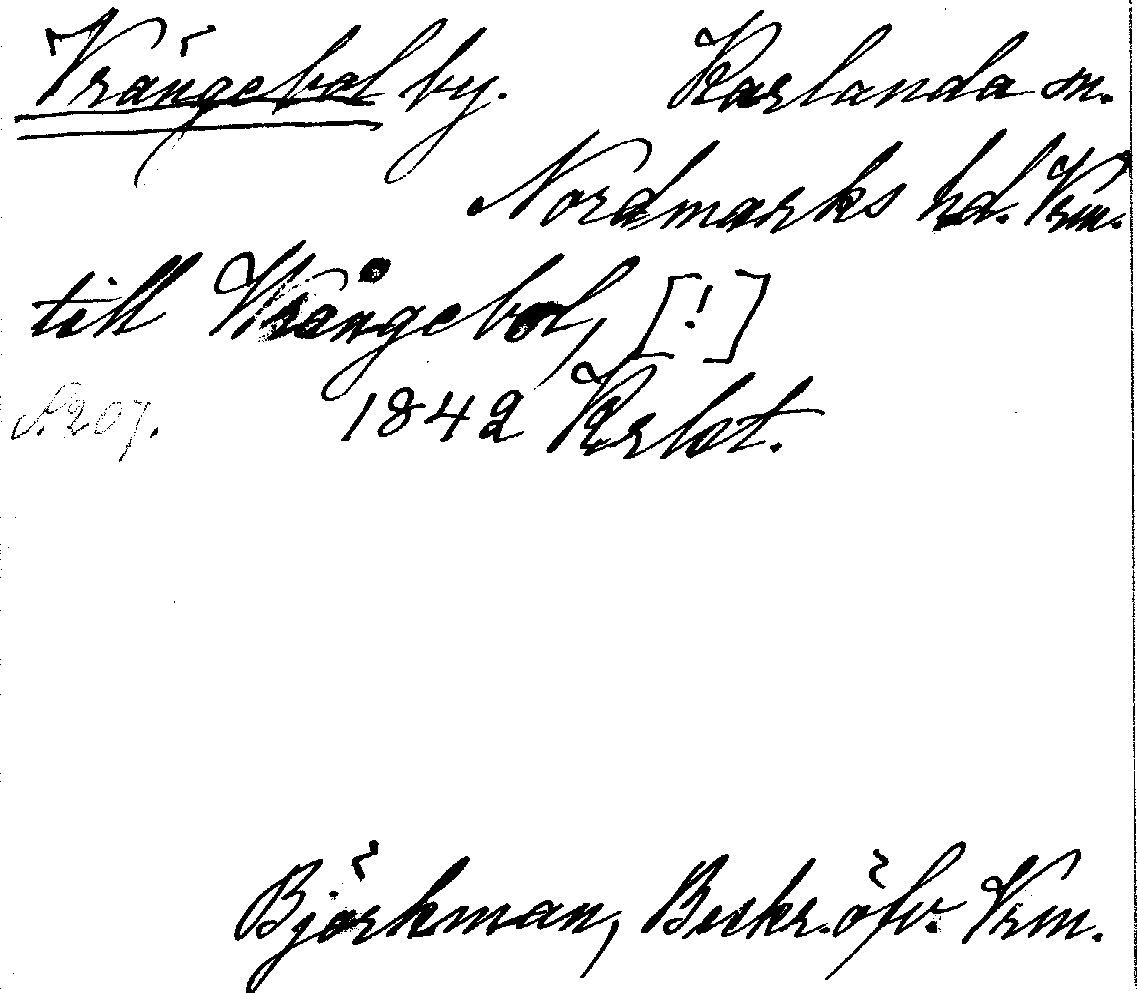 Vrängebol by. Karlanda sn.
Nordmarks hd. Vrm.
till Wrångebol, [!]
A207. 1842 Krlet.
Björkman, Beskr. öfv. Vrm.